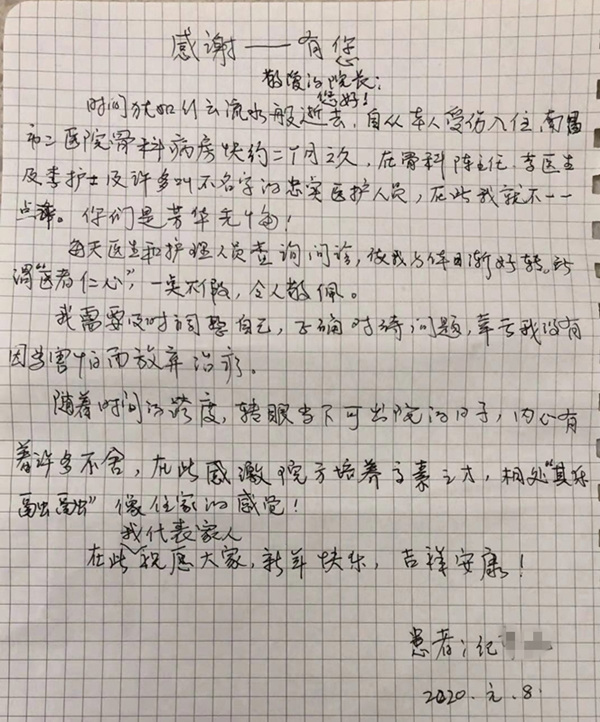 感谢——有您
敬爱的院长:
您好!
时间犹如什么流水般逝去,自从本人受伤入住南昌
市二医院骨科病房快约二个月之久,在骨科陈主任、李医生
及李护士及许多叫不名字的忠实医护人员,在此我就不一一
点谢。你们是芳华无悔!
每天医生和护理人员查询问诊,使我身体日渐好转。所
谓“医者仁心”,一点不假,令人敬佩。
我需要及时调整自己,正确对待问题,幸亏我没有
因为害怕而放弃治疗。
随着时间的跨度,转眼当下可出院的日子,内心有
着许多不舍,在此感激院方培养高素之才,相处“其乐
融融”像住家的感觉!
我代表家人
在此祝愿大家,新年快乐,吉祥安康!
患者:纪
2020.元.8.